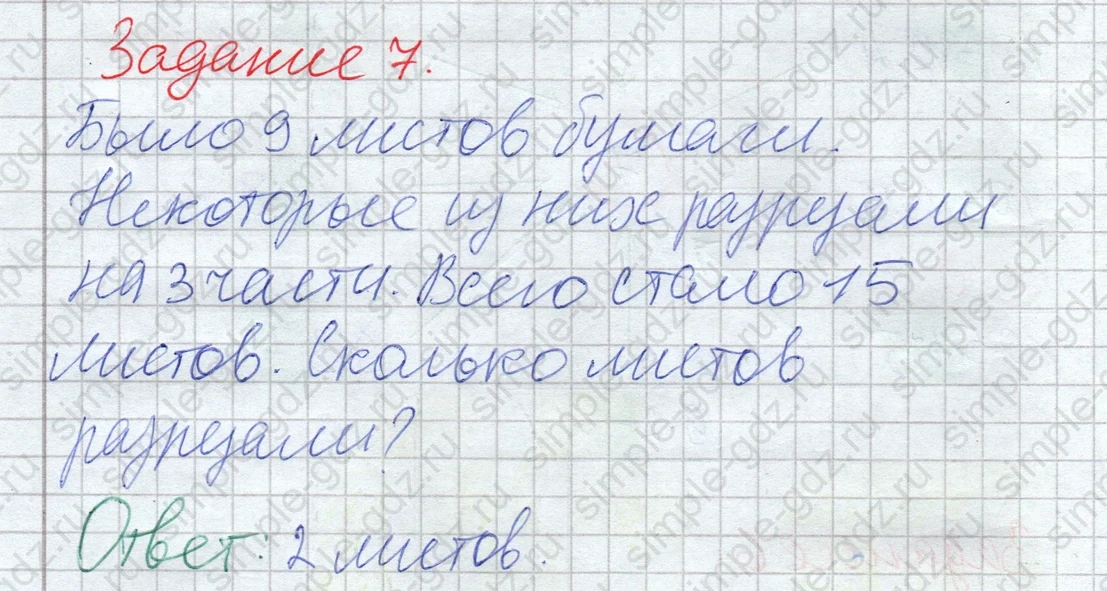 Задание 7.
Было 9 листов бумаги.
Некоторые из них разрезали
на 3 части. Всего стало 15
листов. Сколько листов
разрезали?
Ответ: 2 листов.